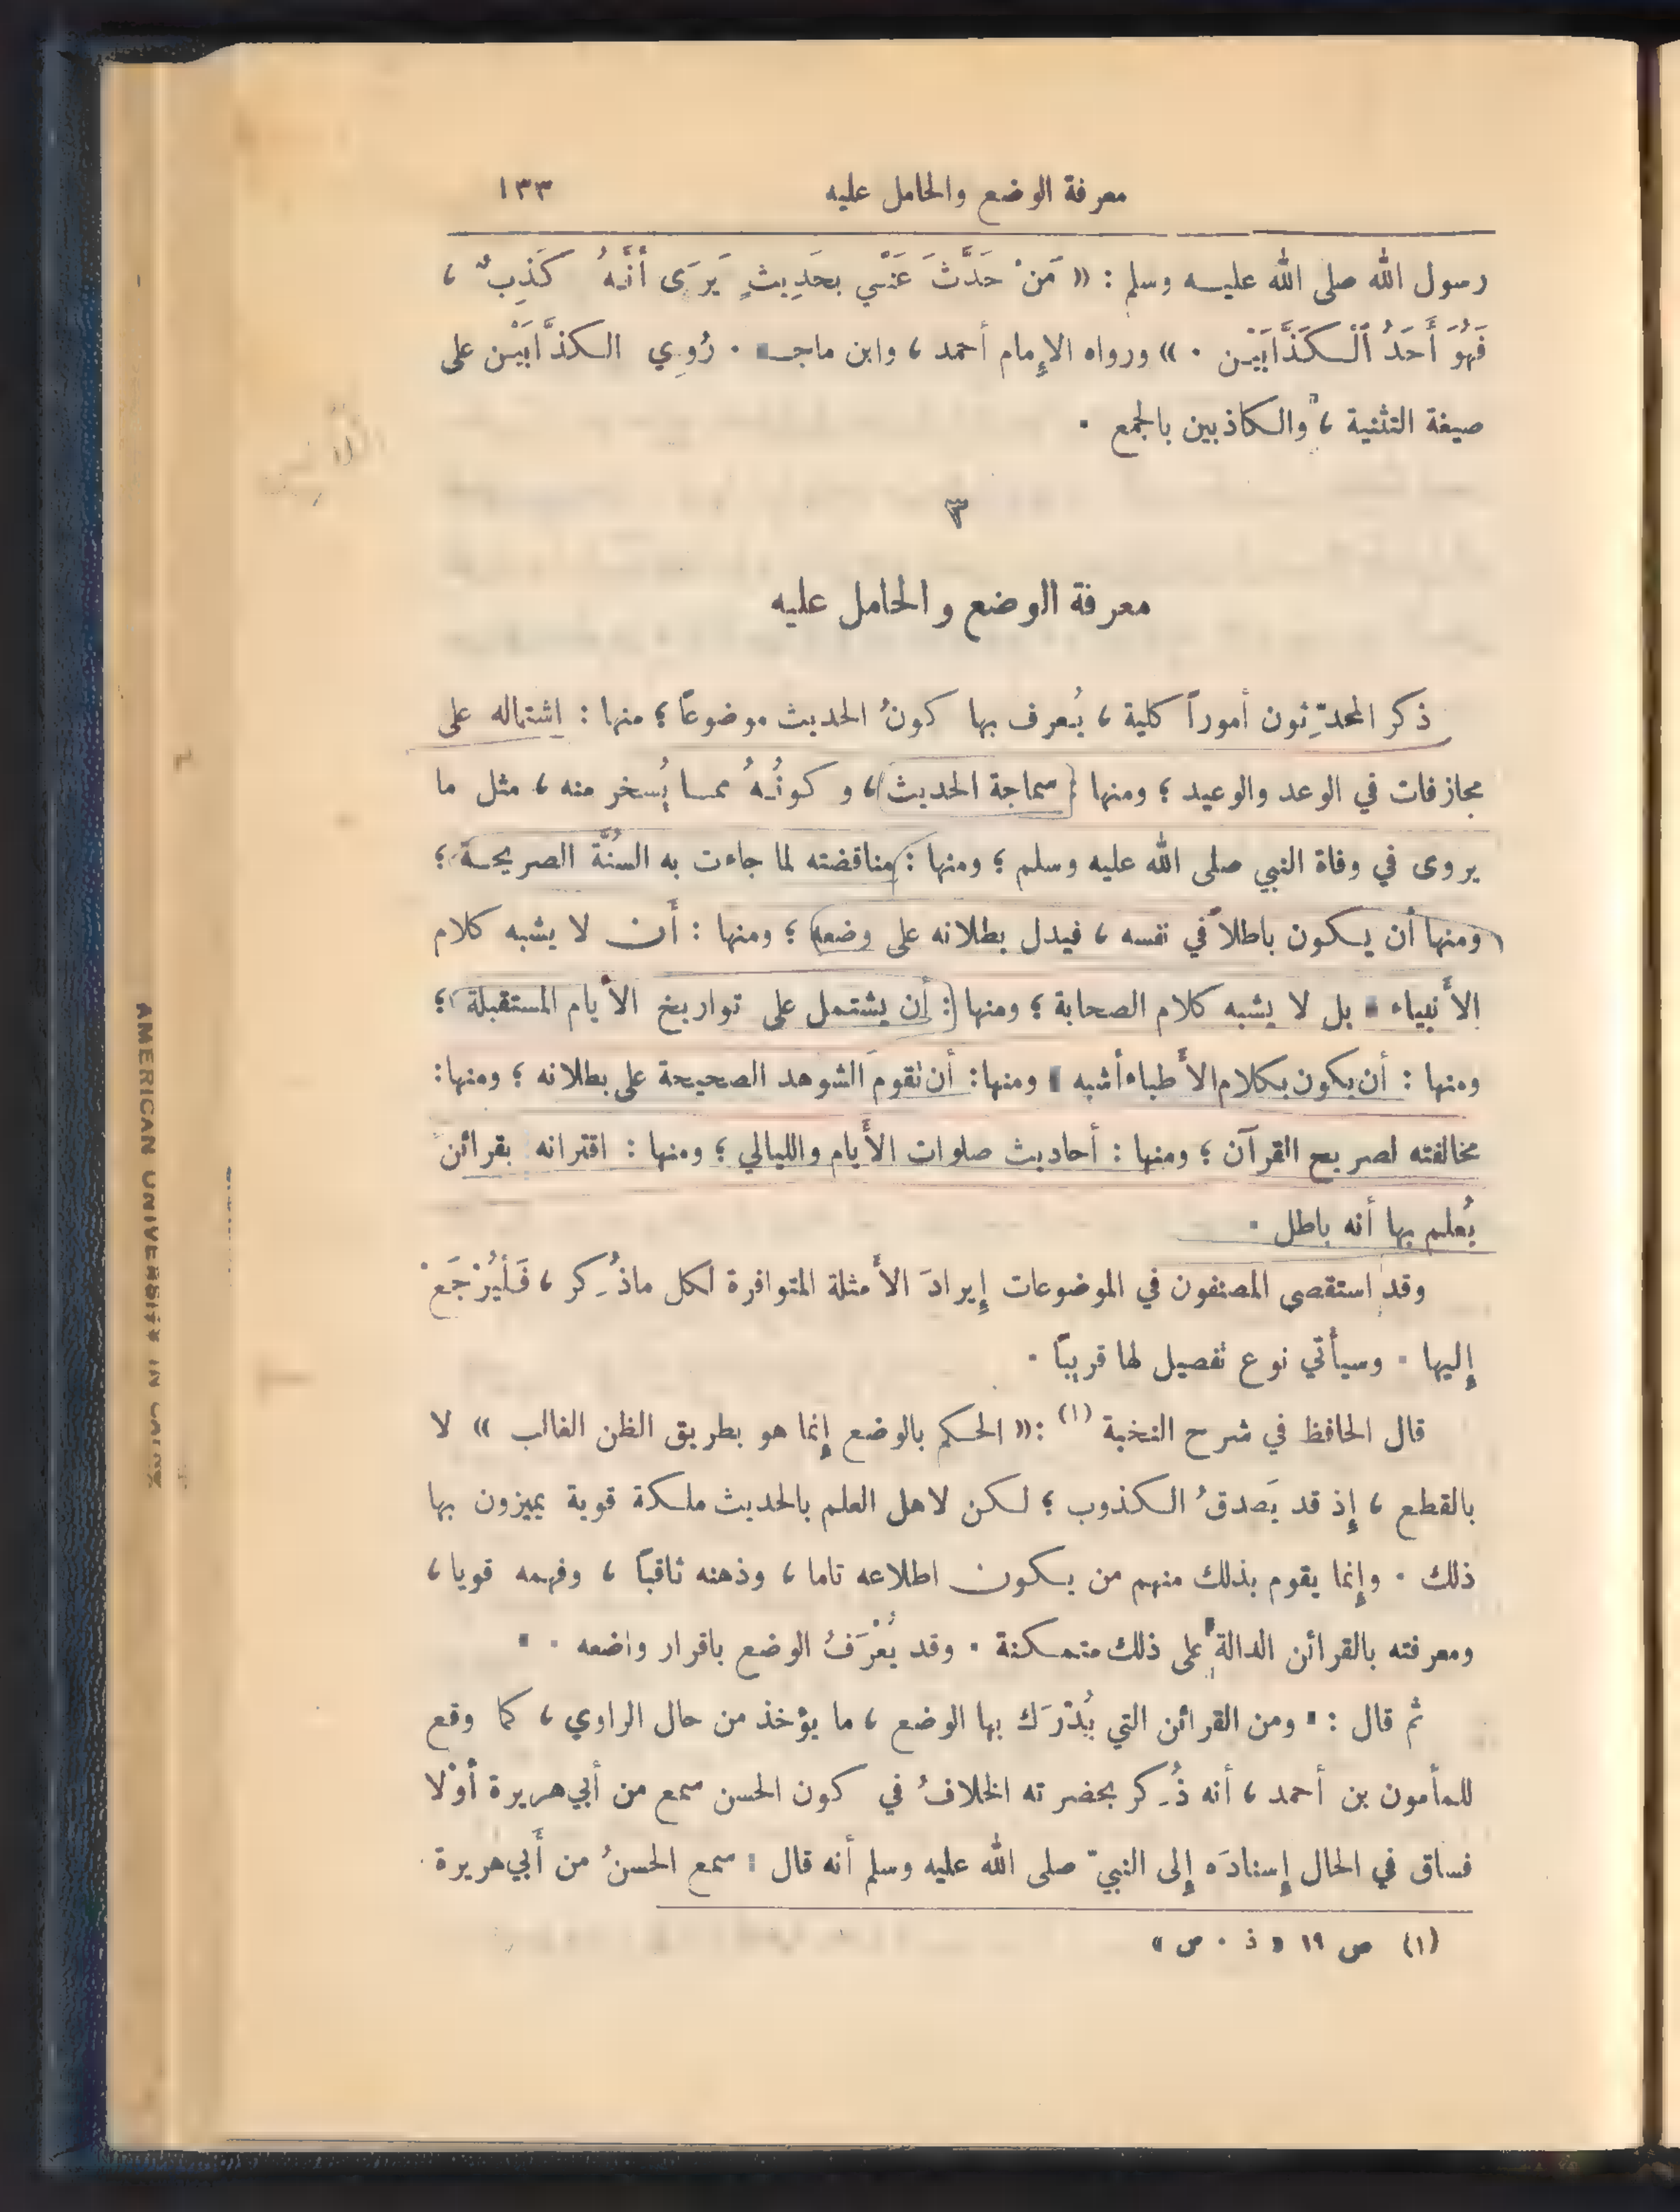 معرفة الوضع والحامل عليه ١٣٣
رسول الله صلى الله عليه وسلم : « مَنْ حَدَّثَ عَنِّي بِحَدِيثٍ يَرَى أَنَّهُ كَذِبٌ ،
فَهُوَ أَحَدُ ٱلْكَذَّابَيْنِ . » ورواه الإمام أحمد ، وابن ماجه . رُوي الكذَّابَيْن على
صيغة التثنية ، والكاذبين بالجمع .
٣
معرفة الوضع والحامل عليه
ذكر المحدِّثون أموراً كلية ، يُعرف بها كونُ الحديث موضوعاً ؛ منها : اشتماله على
مجازفات في الوعد والوعيد ؛ ومنها : سماجة الحديث ، وكونُهُ مما يُسخر منه ، مثل ما
يروى في وفاة النبي صلى الله عليه وسلم ؛ ومنها : مناقضته لما جاءت به السُنَّة الصريحة ؛
ومنها أن يكون باطلاً في نفسه ، فيدل بطلانه على وضعه ؛ ومنها : أَن لا يشبه كلام
الأَنبياء بل لا يشبه كلام الصحابة ؛ ومنها : أن يشتمل على تواريخ الأَيام المستقبلة ؛
ومنها : أن يكون بكلام الأَطباء أشبه ومنها : أن تقومَ الشوهد الصحيحة على بطلانه ؛ ومنها :
مخالفته لصريح القرآن ؛ ومنها : أحاديث صلوات الأَيام والليالي ؛ ومنها : اقترانه بقرائن
يُعلم بها أنه باطل .
وقد استقصى المصنفون في الموضوعات إيرادَ الأَمثلة المتوافرة لكل ماذُكِر ، فَلْيُرْجَعْ
إليها . وسيأتي نوع تفصيل لها قريباً .
قال الحافظ في شرح النخبة (١) : « الحكم بالوضع إنما هو بطريق الظن الغالب » لا
بالقطع ، إذ قد يَصدقُ الكذوب ؛ لكن لاهل العلم بالحديث ملكة قوية يميزون بها
ذلك . وإنما يقوم بذلك منهم من يكون اطلاعه تاما ، وذهنه ثاقباً ، وفهمه قويا ،
ومعرفته بالقرائن الدالة على ذلك متمكنة . وقد يُعْرَفُ الوضع باقرار واضعه .
ثم قال : « ومن القرائن التي يُدْرَك بها الوضع ، ما يؤخذ من حال الراوي ، كما وقع
للمأمون بن أحمد ، أنه ذُكِر بحضرته الخلافُ في كون الحسن سمع من أبي هريرة أوْلا
فساق في الحال إسنادَه إلى النبيّ صلى الله عليه وسلم أنه قال : سمع الحسنُ من أَبي هريرة
(١) ص ١٩ « ذ . ص »
AMERICAN UNIVERSITY IN CAIRO